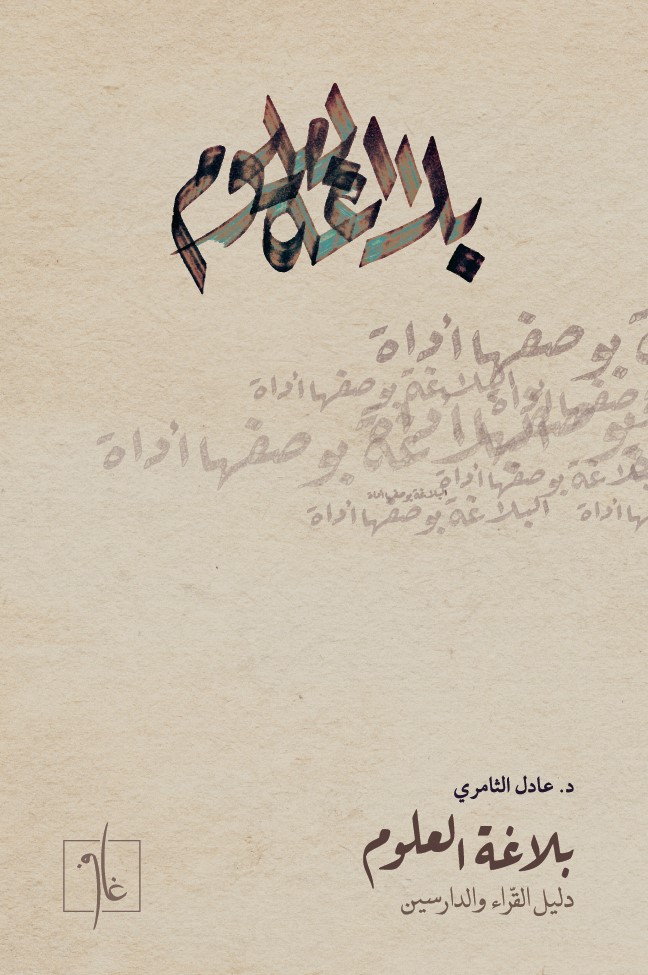 بلاغة العلوم
بوصفها أداة
البلاغة بوصفها أداة
بوصفها أداة
البلاغة بوصفها أداة
البلاغة بوصفها أداة
البلاغة بوصفها أداة
البلاغة بوصفها أداة
أداة
د. عادل الثامري
بلاغة العلوم
دليل القرّاء والدارسين